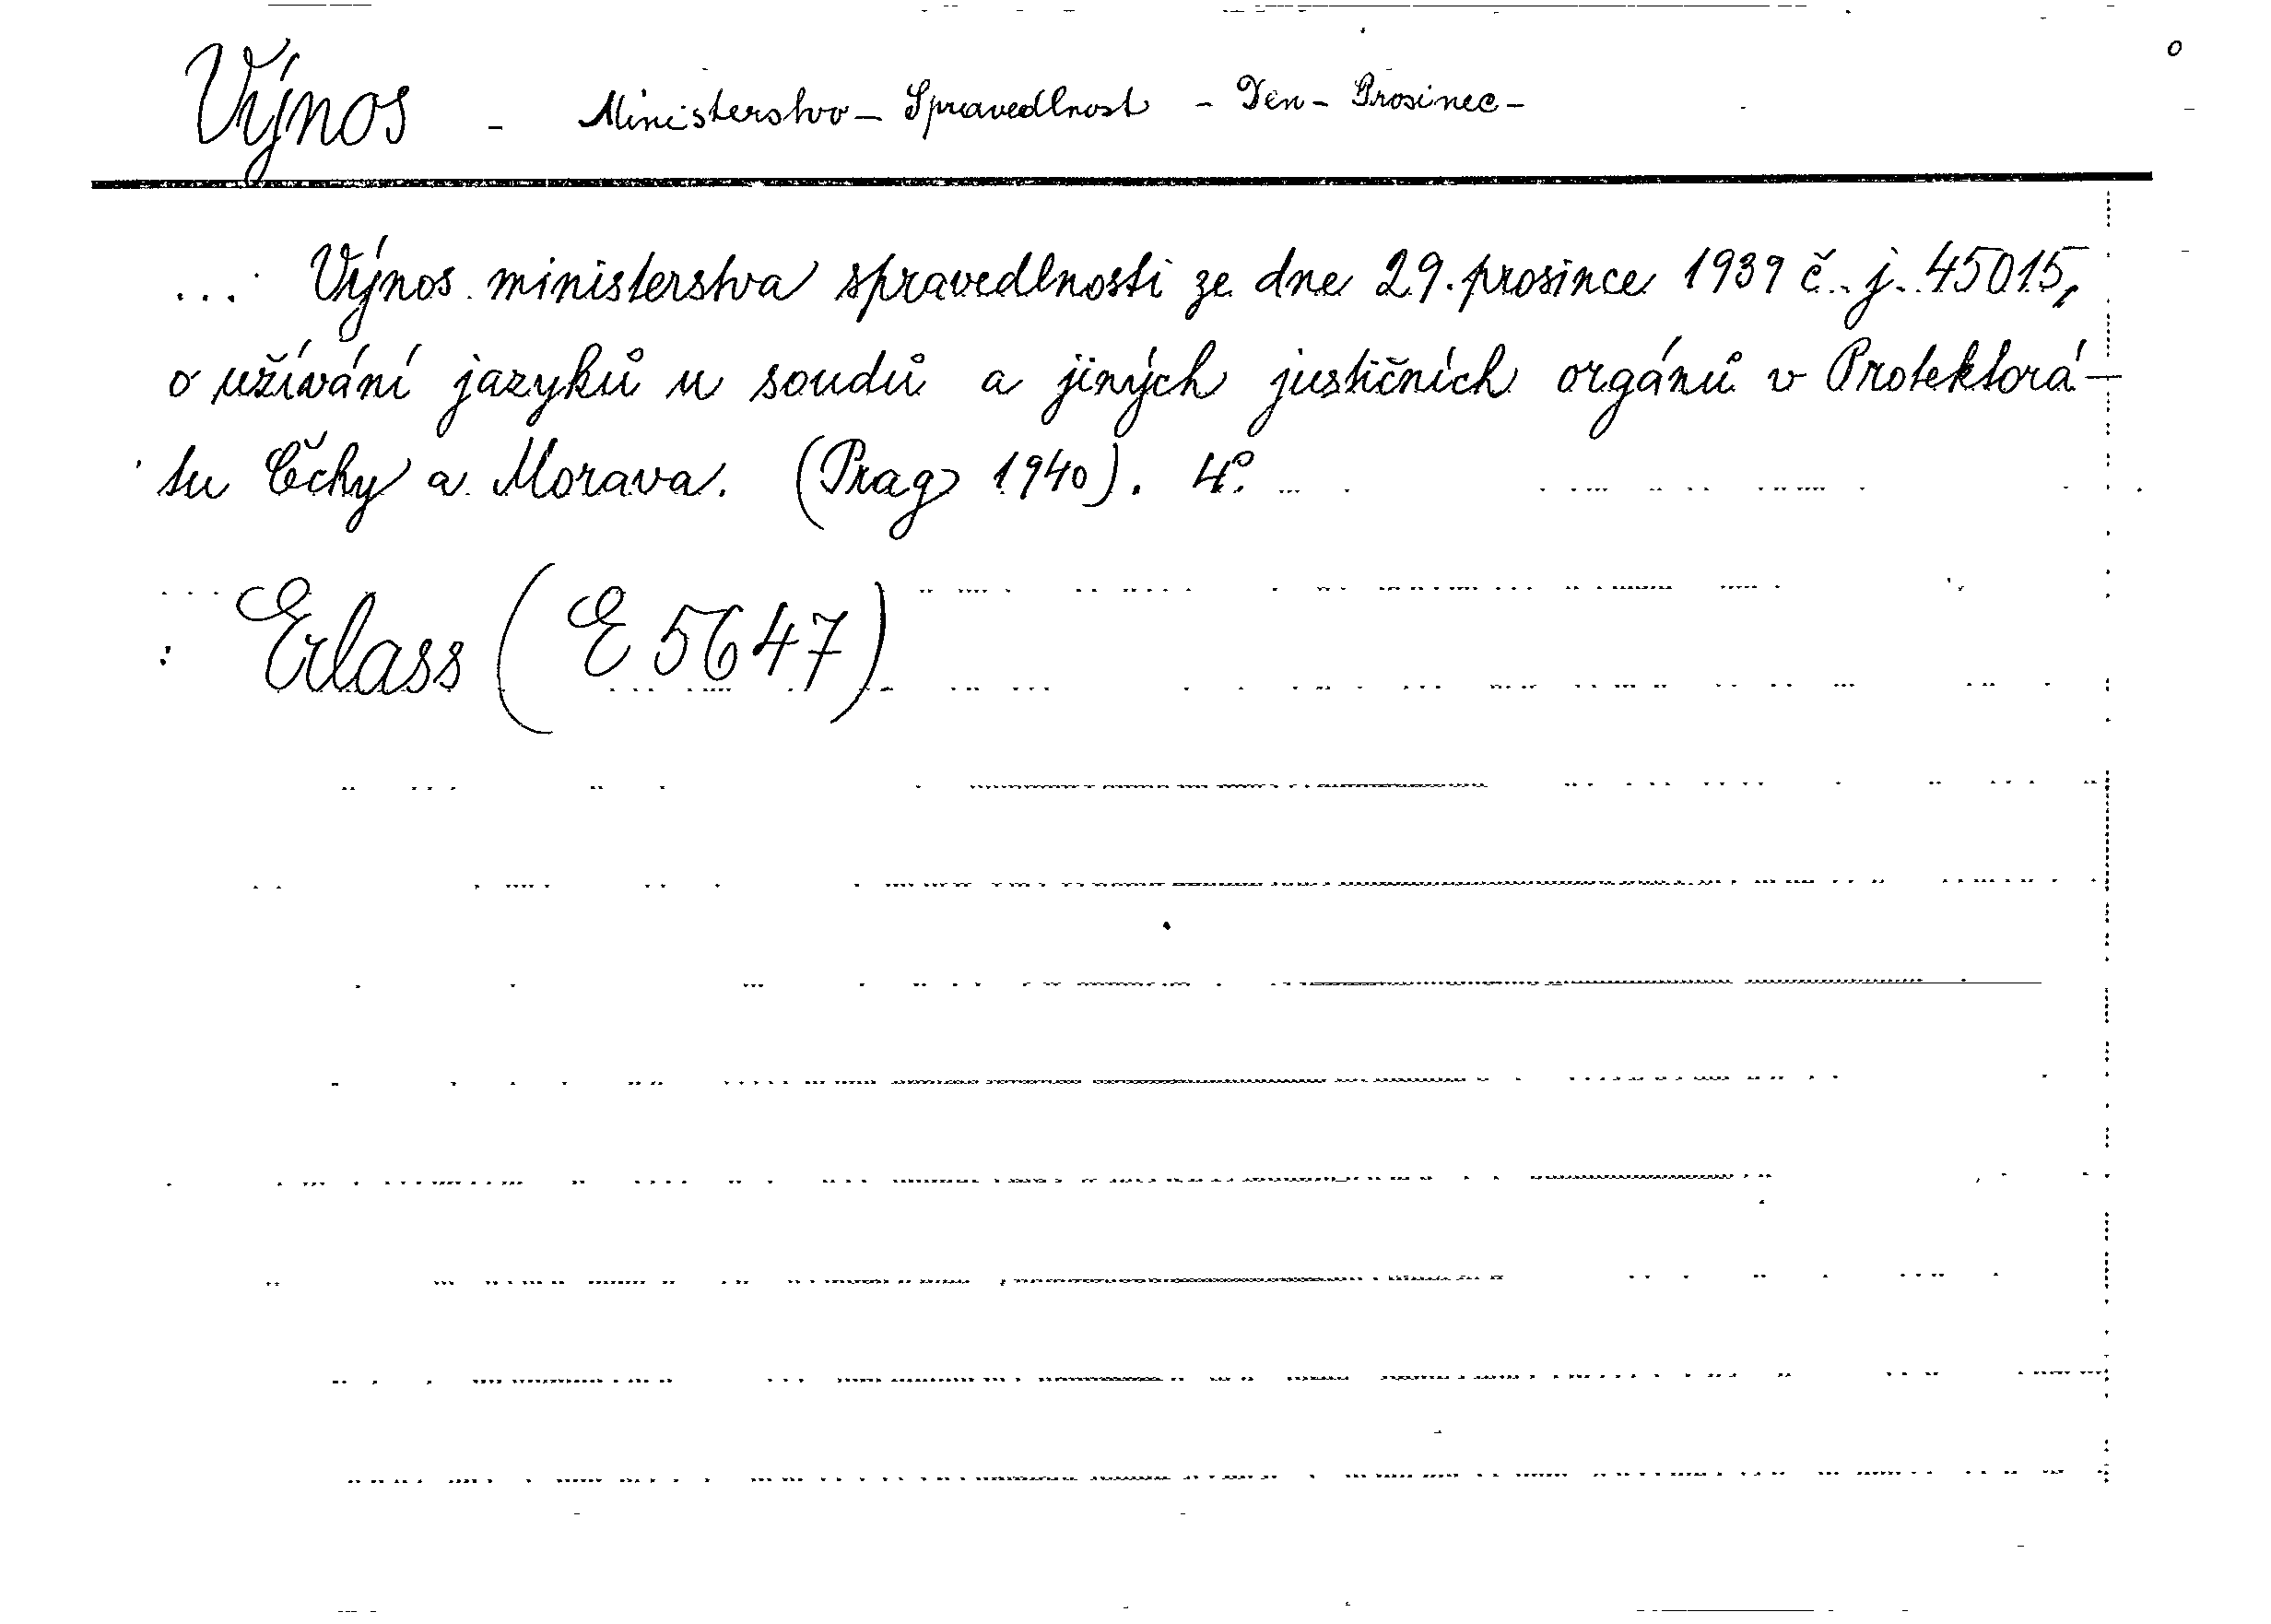 Výnos - Ministerstvo - Spravedlnost - Den - Prosinec -
Výnos ministerstva spravedlnosti ze dne 29. prosince 1939 č. j. 45015,
o užívání jazyků u soudů a jiných justičních orgánů v Protektorá-
tu Čechy a Morava. (Prag 1940). 4°.
Erlass (E 5647)